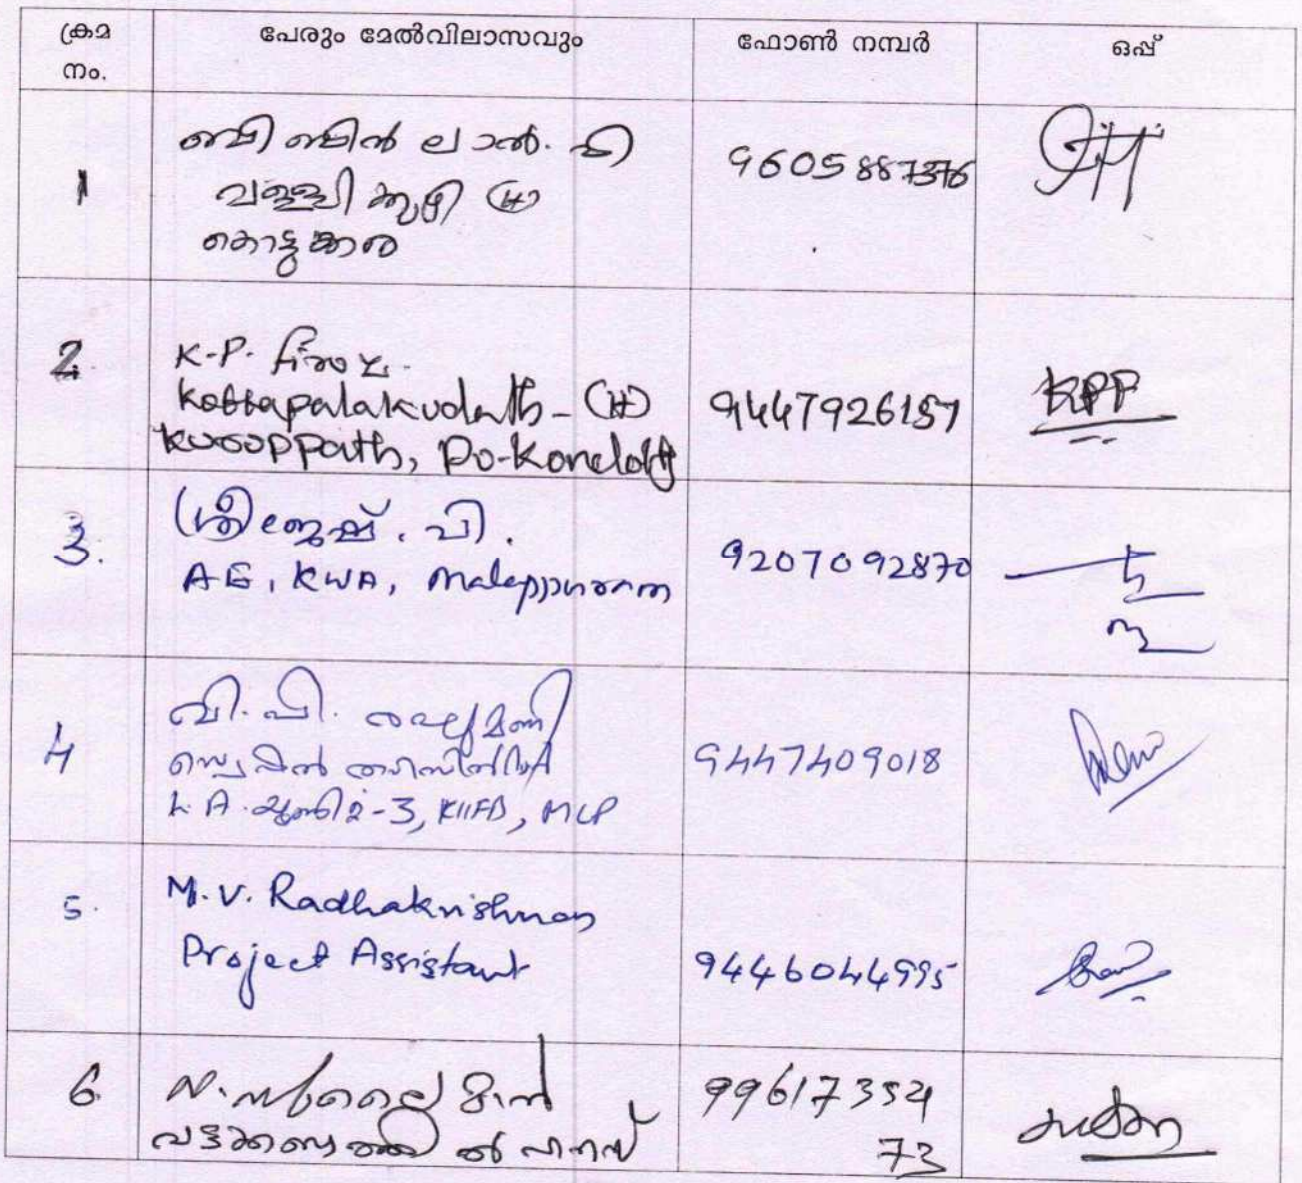 ക്രമ നം.
പേരും മേൽവിലാസവും
ഫോൺ നമ്പർ
ഒപ്പ്
1
ബിബിൻ ലാൽ. പി
വള്ളിക്കുഴി (H)
കൊട്ടുക്കര
9605887376
2.
K.P. Firoz.
Kottapalakudath - (H)
Kuruppath, Po-Kondotty
9447926157
KPF
3.
ശ്രീജേഷ്. പി.
AE, KWA, Malappuram
9207092870
4
വി. പി. രഘുമണി
സ്പെഷ്യൽ തഹസിൽദാർ
L A യൂണിറ്റ്-3, KIIFB, MLP
9447409018
5.
M.V. Radhakrishnan
Project Assistant
9446044995
6.
N. സുലൈമാൻ
ഹൗസ്
99617352
73